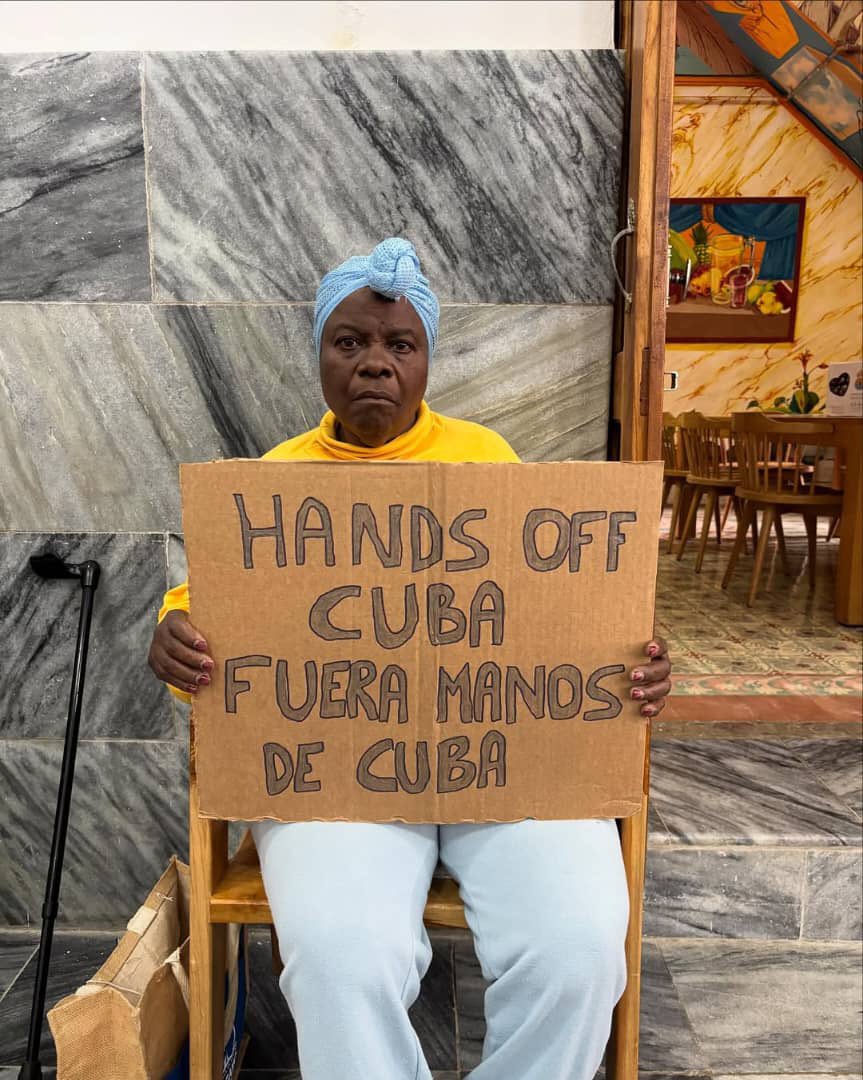 HANDS OFF
CUBA
FUERA MANOS
DE CUBA